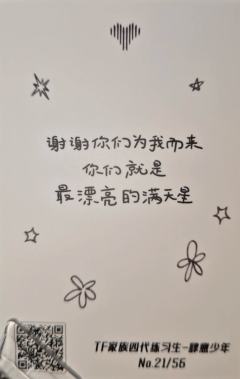 谢谢你们为我而来
你们就是
最漂亮的满天星
TF家族四代练习生-肆意少年
No.21/56